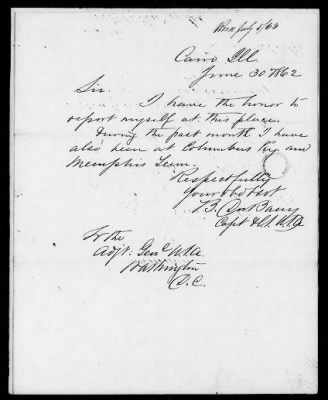 Recd July 5/62
Cairo Ill.
June 30 1862
Sir.
I have the honor to
report myself at this place.
During the past month I have
also been at Columbus Ky. and
Memphis Tenn.
Respectfully
Your obt svt
B.
Capt & U.S.A.
To the
Adjt. Genl U.S.A.
Washington
D.C.